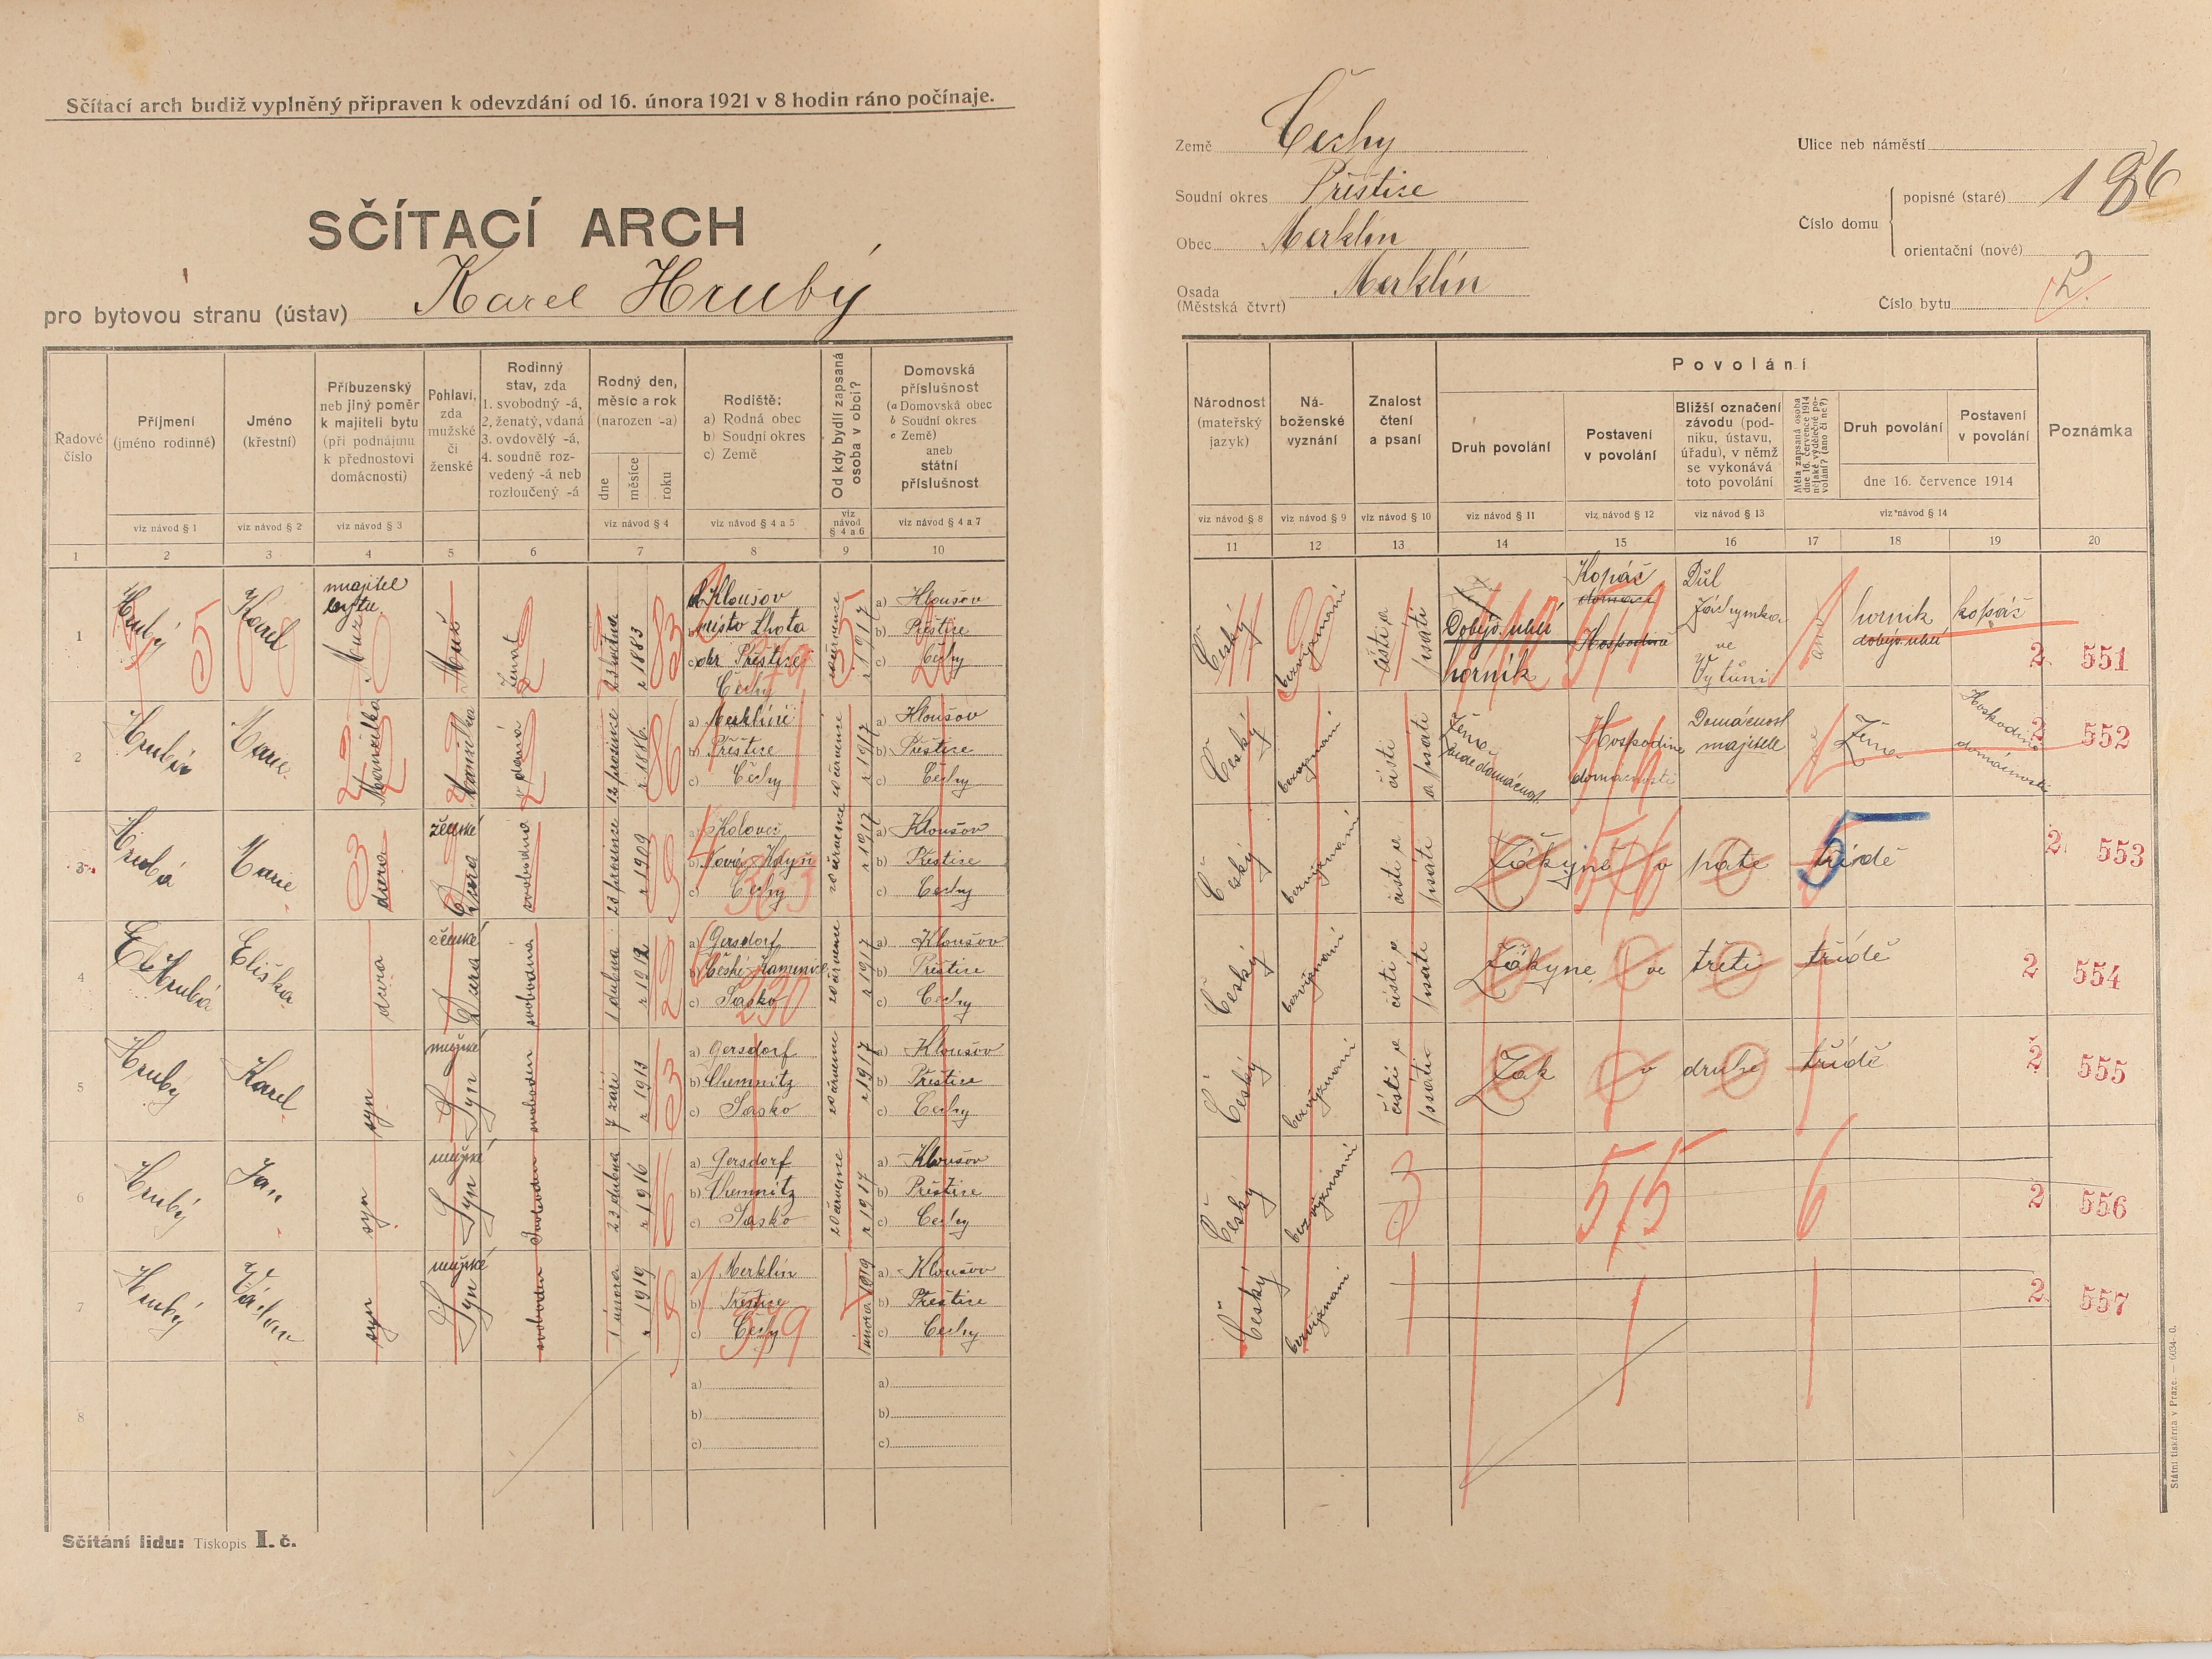 Sčítací arch budiž vyplněný připraven k odevzdání od 16. února 1921 v 8 hodin ráno počínaje.
SČÍTACÍ ARCH
pro bytovou stranu (ústav) Karel Hrubý
Země Čechy
Soudní okres Přeštice
Obec Merklín
Osada (Městská čtvrt) Merklín
Ulice neb náměstí
Číslo domu
popisné (staré) 186
orientační (nové)
Číslo bytu 2.
Řadové číslo
Příjmení (jméno rodinné)
Jméno (křestní)
Příbuzenský neb jiný poměr k majiteli bytu (při podnájmu k přednostovi domácnosti)
Pohlaví, zda mužské či ženské
Rodinný stav, zda 1. svobodný -á, 2. ženatý, vdaná 3. ovdovělý -á, 4. soudně rozvedený -á neb rozloučený -á
Rodný den, měsíc a rok (narozen -a)
dne měsíce roku
Rodiště: a) Rodná obec b) Soudní okres c) Země
Od kdy bydlí zapsaná osoba v obci?
Domovská příslušnost (a Domovská obec b Soudní okres c Země) aneb státní příslušnost
Národnost (mateřský jazyk)
Náboženské vyznání
Znalost čtení a psaní
Povolání
Druh povolání
Postavení v povolání
Bližší označení závodu (podniku, ústavu, úřadu), v němž se vykonává toto povolání
Měla zapsaná osoba dne 16. července 1914 nějaké výdělečné povolání? (ano či ne?)
Druh povolání
Postavení v povolání
dne 16. července 1914
Poznámka
viz návod § 1 viz návod § 2 viz návod § 3 viz návod § 4 viz návod § 4 a 5 viz návod § 4 a 6 viz návod § 4 a 7
viz návod § 8 viz návod § 9 viz návod § 10 viz návod § 11 viz návod § 12 viz návod § 13 viz návod § 14
1 2 3 4 5 6 7 8 9 10
11 12 13 14 15 16 17 18 19 20
1 Hrubý Karel majitel bytu Muž r 1883
Klousov
místo Lhota
okr Přeštice
Čechy
r 1917
a) Kloušov
b) Přeštice
c) Čechy
Český bezvyznání čísti a psáti
Dobýv. uhlí
horník
Kopáč
Důl
ve
ano horník
dobýv. uhlí
kopáč
2. 551
2 Hrubá Marie Manželka vdaná 12 prosince r 1886
a) Merklíně
b) Přeštice
c) Čechy
20 července r 1917
a) Kloušov
b) Přeštice
c) Čechy
Český bezvyznání čísti a psáti
Žena
vede domácnost
Hospodině
domácnosti
Domácnost
majitele
ne Žena
Hospodině
domácnosti
2 552
3 Hrubá Marie dcera ženské Dcera svobodna 23 prosince r 1909
a) Kolovec
b) Nová-Kdyň
c) Čechy
20 července r 1917
a) Kloušov
b) Přeštice
c) Čechy
Český bezvyznání čísti a psáti
Žákyně v páté třídě
5
2. 553
4 Hrubá Eliška dcera ženské Dcera svobodna 1 dubna r 1912
a) Gersdorf
c) Sasko
20 července r 1917
a) Kloušov
b) Přeštice
c) Čechy
Český bezvyznání čísti a psáti
Žákyne ve třetí třídě
2 554
5 Hrubý Karel syn mužské Syn svoboden 7 září r 1913
a) Gersdorf
b) Chemnitz
c) Sasko
20 července r 1917
a) Kloušov
b) Přeštice
c) Čechy
Český bezvyznání čísti a psáti
Žák v druhé třídě
2 555
6 Hrubý Jan syn mužské Syn Svoboden 23 dubna r 1916
a) Gersdorf
b) Chemnitz
c) Sasko
20 července r 1917
a) Kloušov
b) Přeštice
c) Čechy
Český bezvyznání
515 6
2 556
7 Hrubý Václav syn mužské Syn svoboden 1 února r 1919
a) Merklín
b) Přeštice
c) Čechy
1 února 1919
a) Kloušov
b) Přeštice
c) Čechy
Český bezvyznání
2. 557
8
a)
b)
c)
a)
b)
c)
Sčítání lidu: Tiskopis I. č.
Státní tiskárna v Praze. — 6034-0.